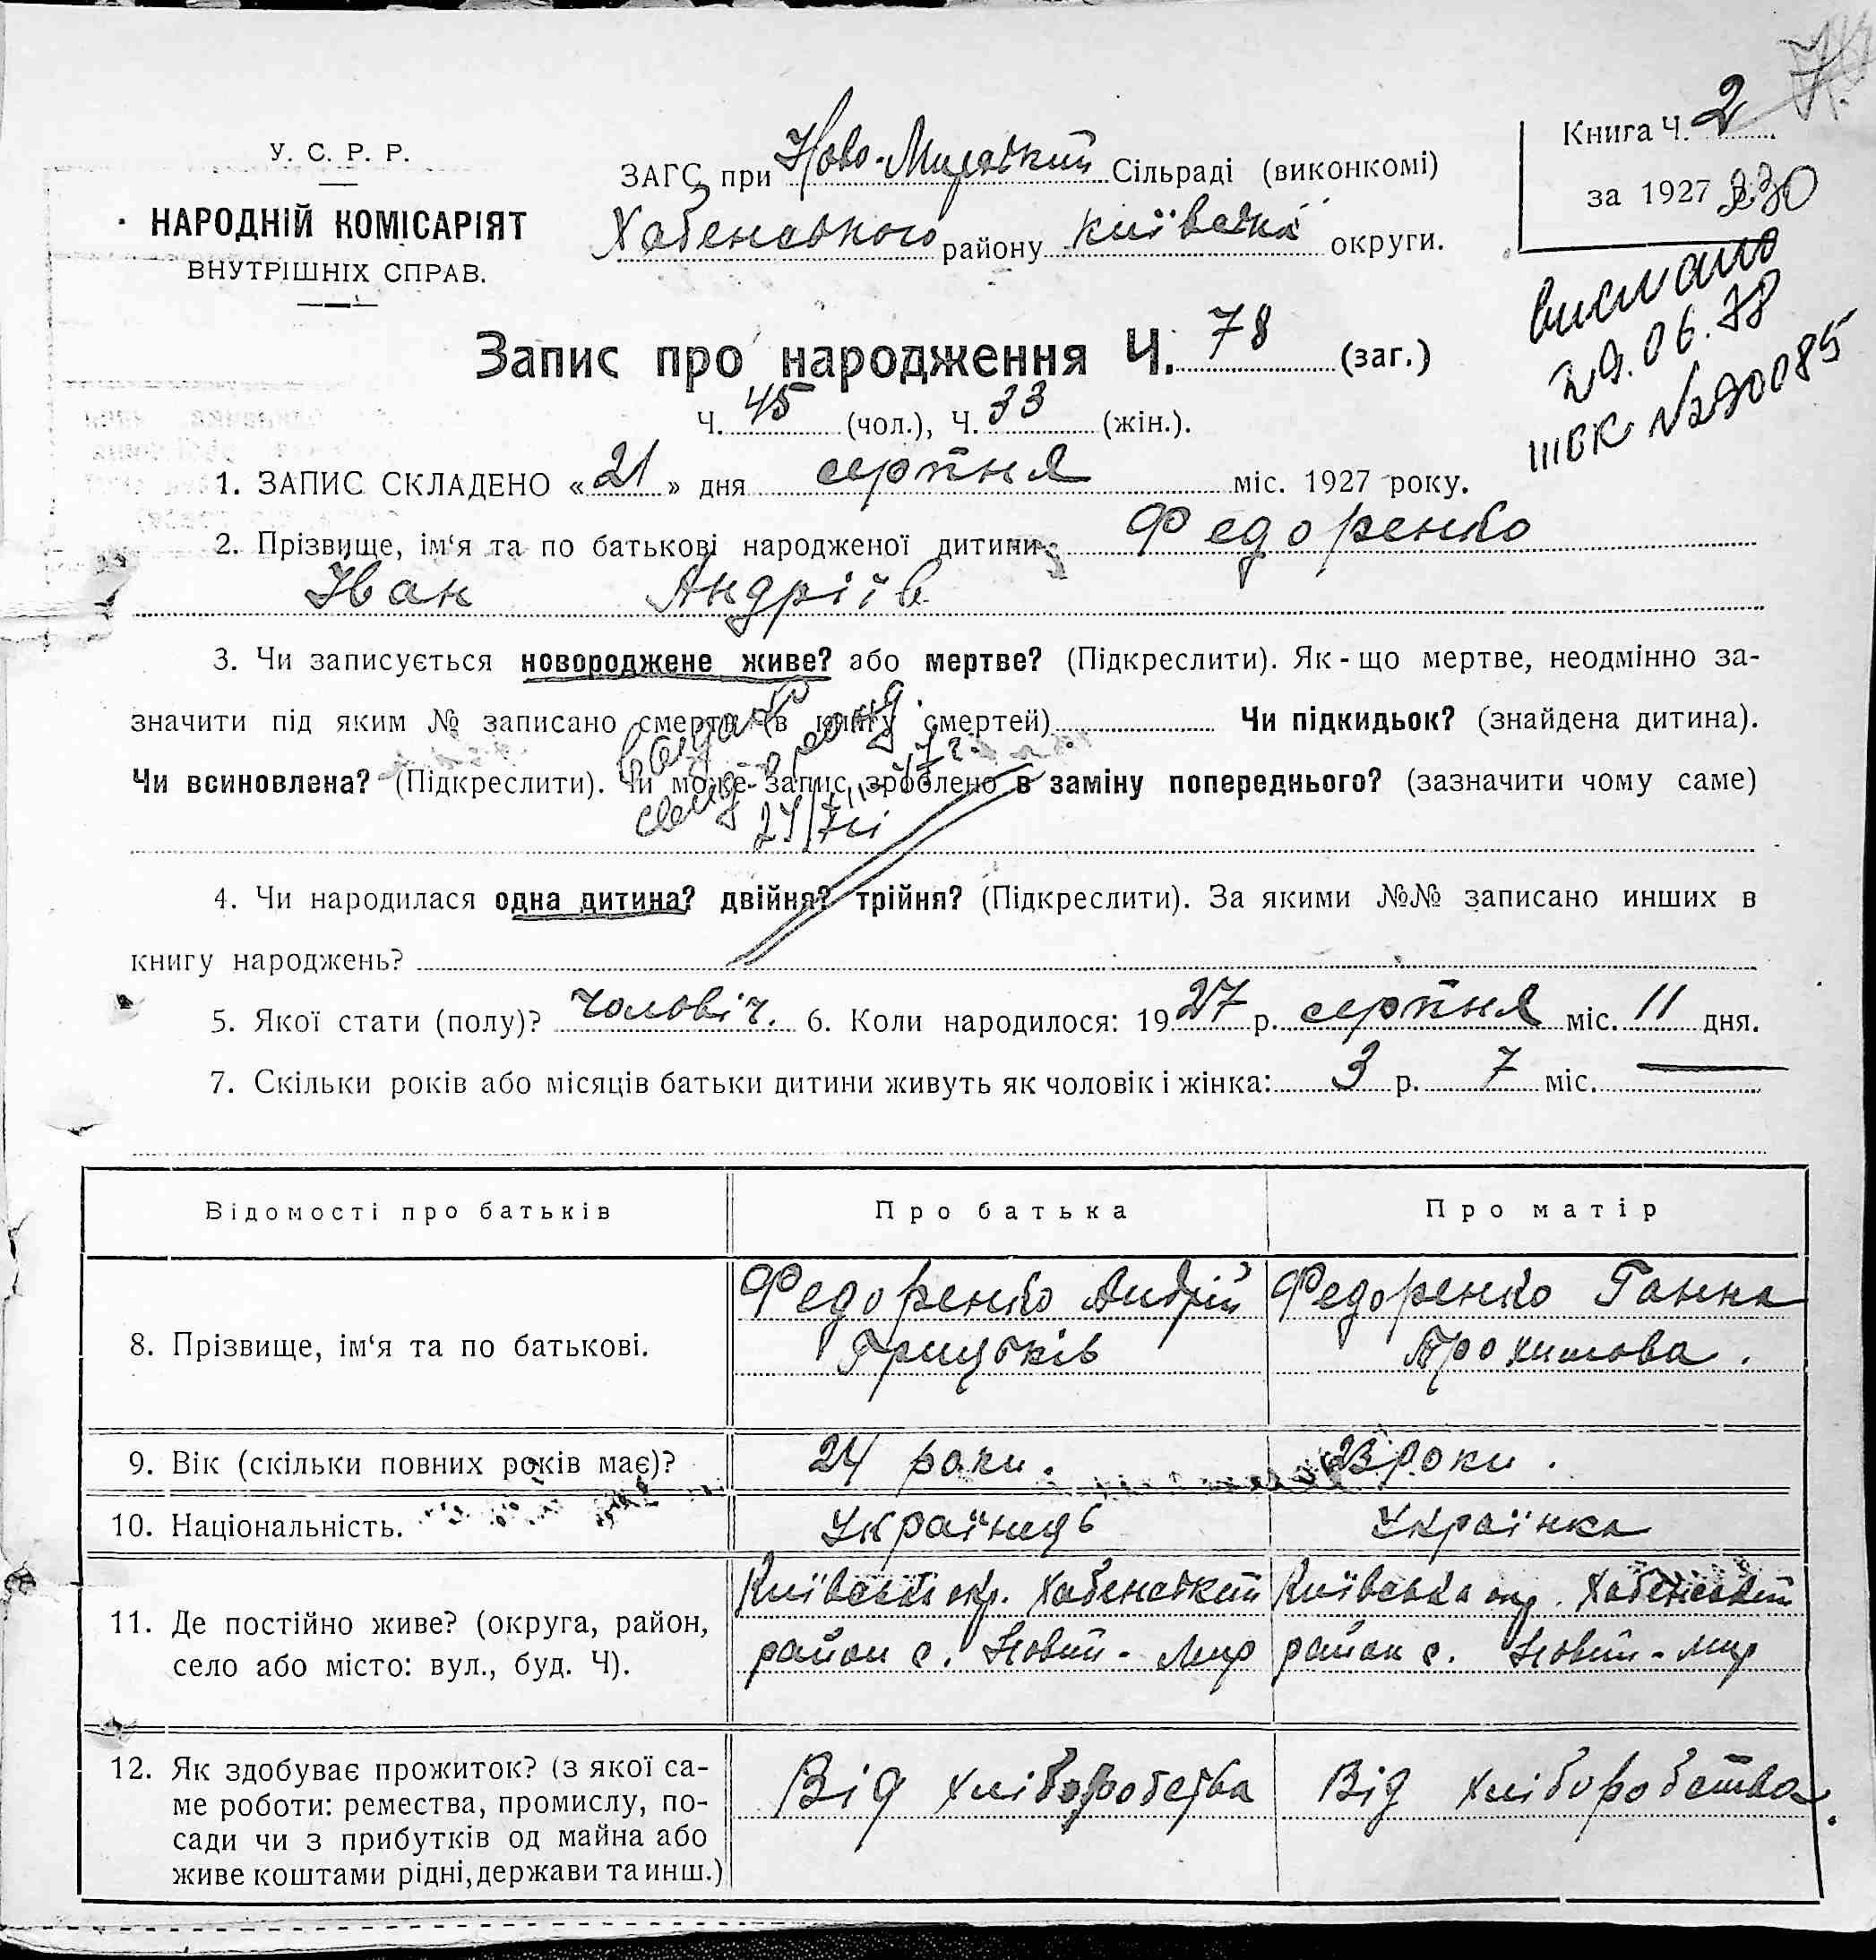 Книга Ч. 2
за 1927 230
У. С. Р. Р.
НАРОДНІЙ КОМІСАРІЯТ
ВНУТРІШНІХ СПРАВ.
ЗАГС при Ново-Мирський Сільраді (виконкомі)
Хабенського району Київська округи.
вислано
29.06.88
ШБК №290085
Запис про народження Ч. 78 (заг.)
Ч. 45 (чол.), Ч. 33 (жін.).
1. ЗАПИС СКЛАДЕНО «21» дня серпня міс. 1927 року.
2. Прізвище, ім‘я та по батькові народженої дитини Федоренко
Іван Андріїв
3. Чи записується новороджене живе? або мертве? (Підкреслити). Як-що мертве, неодмінно за-
значити під яким № записано смерть (в книгу смертей) Чи підкидьок? (знайдена дитина).
Чи всиновлена? (Підкреслити). Чи може запис зроблено в заміну попереднього? (зазначити чому саме)
4. Чи народилася одна дитина? двійня? трійня? (Підкреслити). За якими №№ записано инших в
книгу народжень?
5. Якої стати (полу)? чоловіч. 6. Коли народилося: 1927 р. серпня міс. 11 дня.
7. Скільки років або місяців батьки дитини живуть як чоловік і жінка: 3 р. 7 міс.
Відомості про батьків Про батька Про матір
8. Прізвище, ім‘я та по батькові.
Федоренко Андрій
Грицьків
Федоренко Ганна
Прохимова.
9. Вік (скільки повних років має)? 24 роки. 23 роки.
10. Національність. Українець Українка
11. Де постійно живе? (округа, район,
село або місто: вул., буд. Ч).
Київська окр. Хабенський
район с. Новий-Мир
Київська окр. Хабенський
район с. Новий-Мир
12. Як здобуває прожиток? (з якої са-
ме роботи: ремества, промислу, по-
сади чи з прибутків од майна або
живе коштами рідні, держави та инш.)
Від хліборобства
Від хліборобства.